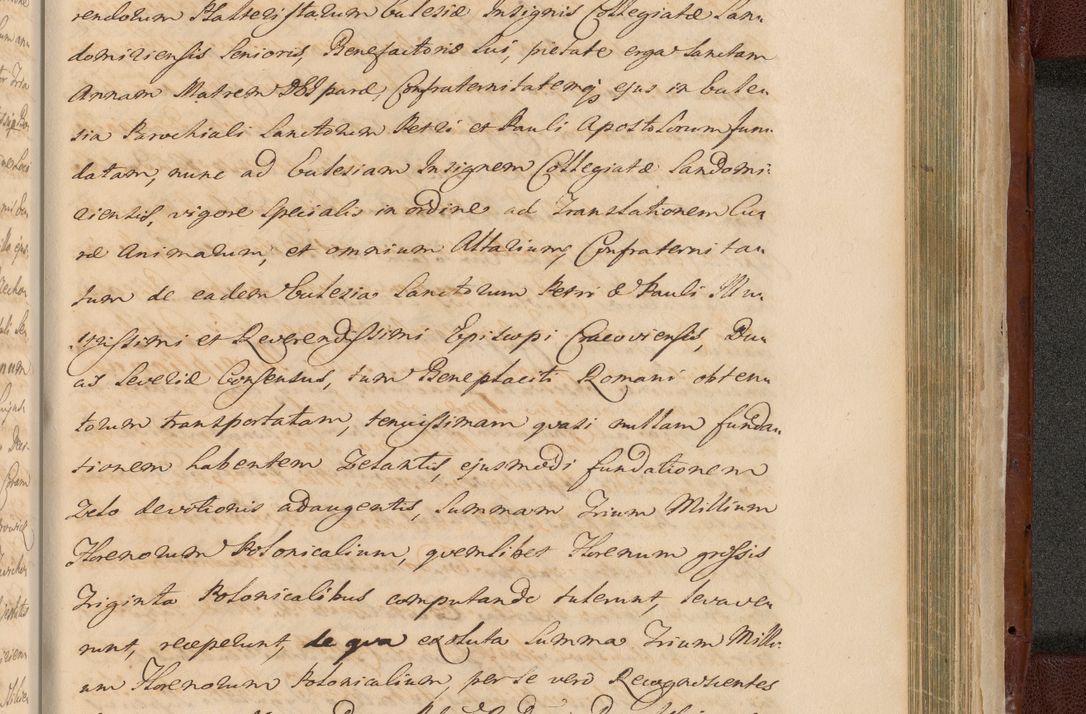 rendorum Psalteristarum Ecclesiæ Insignis Collegiatæ San=
domiriensis Senioris, Benefactoris Sui, pietate erga Sanctam
Annam Matrem Confraternitatemq ejus in Eccle=
sia Parochiali Sanctorum Petri et Pauli Apostolorum fun=
datam, nunc ad Ecclesiam Insignem Collegiatæ Sandomi=
riensis, vigore specialis in ordine ad Translationem Cu=
ræ Animarum, et omnium Altarium, Confraternita=
tum de eadem Ecclesia Sanctorum Petri & Pauli Illu=
strissimi et Reverendissimi Episcopi Cracoviensis, Du=
cis Severiæ Consensus, tum Beneplaciti Romani obten=
torum transportatam, tenuissimam quasi nullam funda=
tionem habentem Zelantis, ejusmodi fundationem
Zelo devotionis adaugentis, Summam Trium Millium
Florenorum Polonicalium, quemlibet Florenum grossis
Triginta Polonicalibus computando tulerunt, levave=
runt, receperunt, de qua exoluta Summa Trium Milli=
um Florenorum Polonicalium, per se vero Recognoscentes